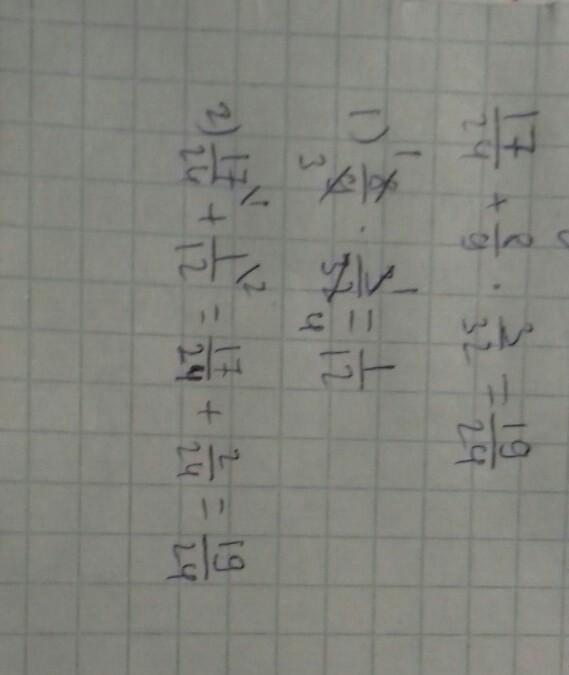 17/24 + 8/9 · 3/32 = 19/24
1) 8/9 · 3/32 = 1/12
1 3 1 4
2) 17/24 \1 + 1/12 \2 = 17/24 + 2/24 = 19/24